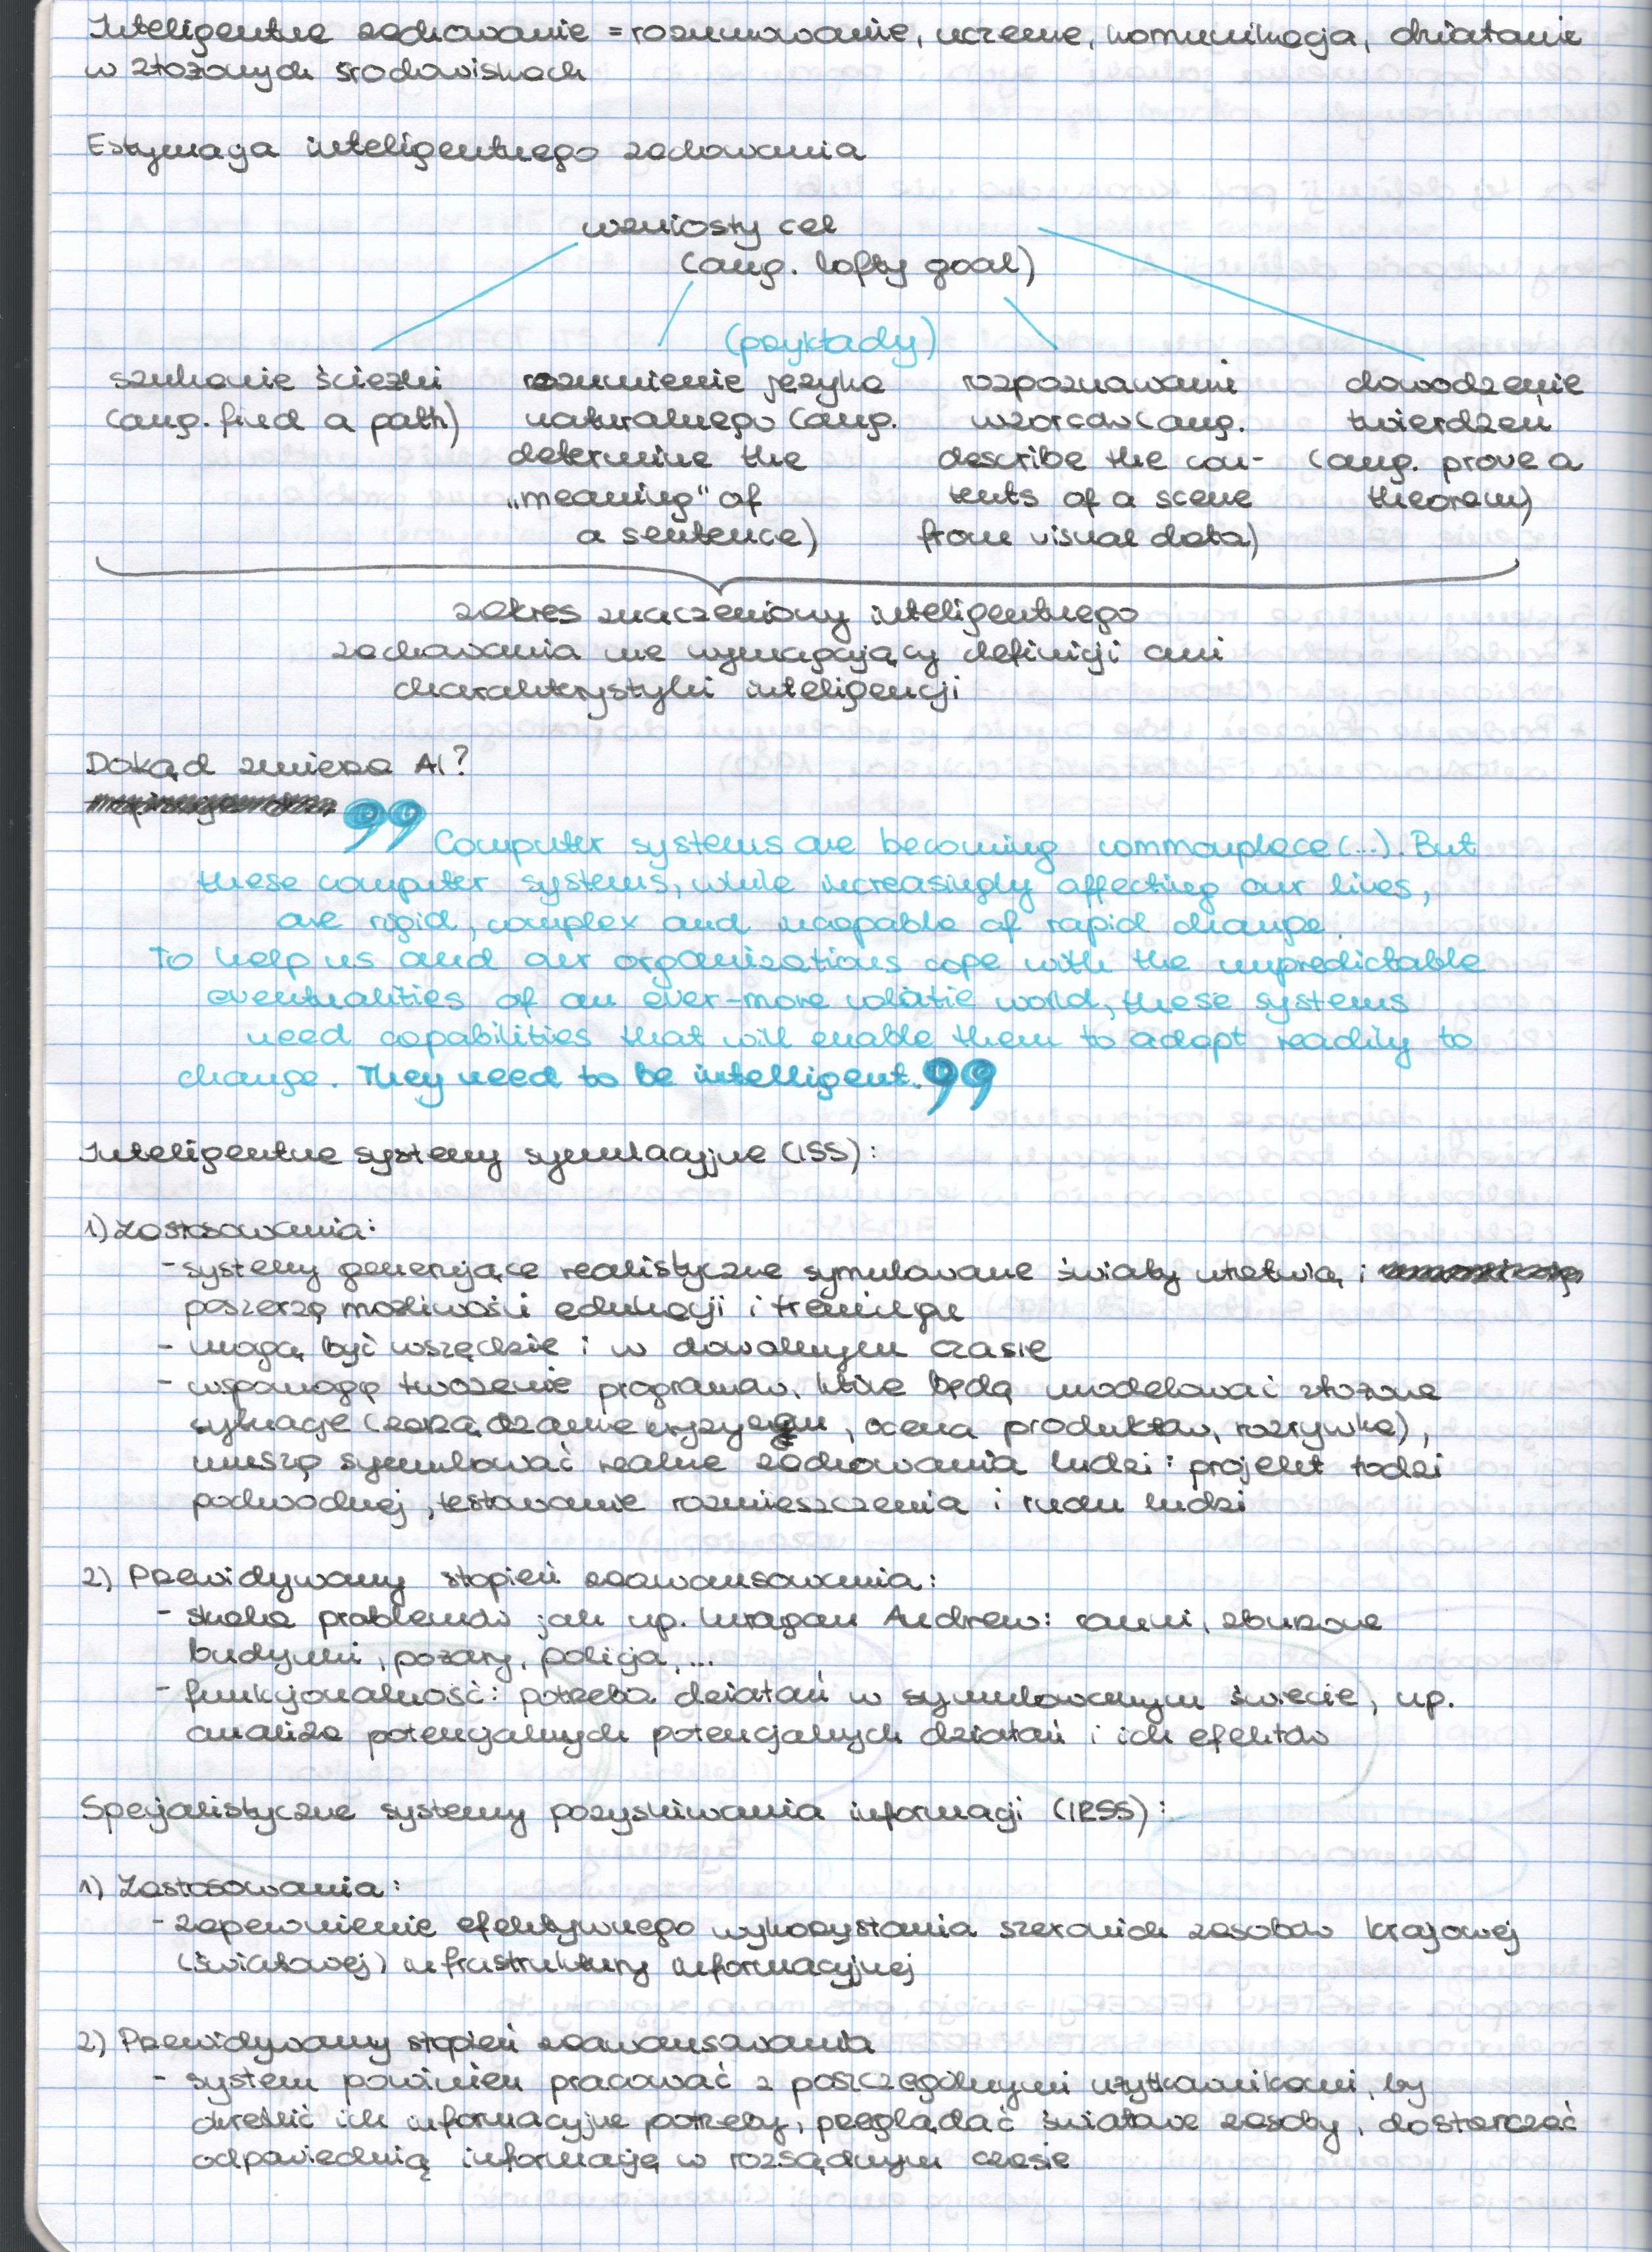 Inteligentne zachowanie = rozumowanie, uczenie, komunikacja, działanie
w złożonych środowiskach
Estymacja inteligentnego zachowania
wzniosły cel
(ang. lofty goal)
(przykłady)
szukanie ścieżki
(ang. find a path)
rozumienie języka
naturalnego (ang.
determine the
„meaning" of
a sentence)
rozpoznawanie
wzorców (ang.
describe the con-
tents of a scene
from visual data)
dowodzenie
twierdzeń
(ang. prove a
theorem)
zakres znaczeniowy inteligentnego
zachowania nie wymagający definicji ani
charakterystyki inteligencji
Dokąd zmierza AI?
99 Computer systems are becoming commonplace (...). But
these computer systems, while increasingly affecting our lives,
are rigid, complex and incapable of rapid change.
To help us and our organizations cope with the unpredictable
eventualities of an ever-more volatile world, these systems
need capabilities that will enable them to adapt readily to
change. They need to be intelligent. 99
Inteligentne systemy symulacyjne (ISS):
1) Zastosowania:
- systemy generujące realistyczne symulowane światy ułatwią i
poszerzą możliwości edukacji i treningu
- mogą być wszędzie i w dowolnym czasie
- wspomogą tworzenie programów, które będą modelować złożone
sytuacje (zarządzanie kryzysem, ocena produktów, rozrywka),
muszą symulować realne zachowania ludzi: projekt łodzi
podwodnej, testowanie rozmieszczenia i ruchu ludzi
2) Przewidywany stopień zaawansowania:
- skala problemów jak np. huragan Andrew: ranni, zburzone
budynki, pożary, policja, ...
- funkcjonalność: potrzeba działań w symulowanym świecie, np.
analiza potencjalnych potencjalnych działań i ich efektów
Specjalistyczne systemy pozyskiwania informacji (IRSS):
1) Zastosowania:
- zapewnienie efektywnego wykorzystania szerokich zasobów krajowej
(światowej) infrastruktury informacyjnej
2) Przewidywany stopień zaawansowania
- system powinien pracować z poszczególnymi użytkownikami, by
określić ich informacyjne potrzeby, przeglądać światowe zasoby, dostarczać
odpowiednią informację w rozsądnym czasie